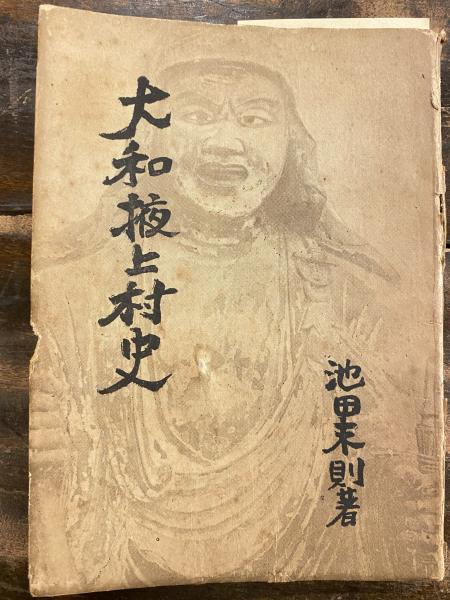 大和掖上村史
池田末則著